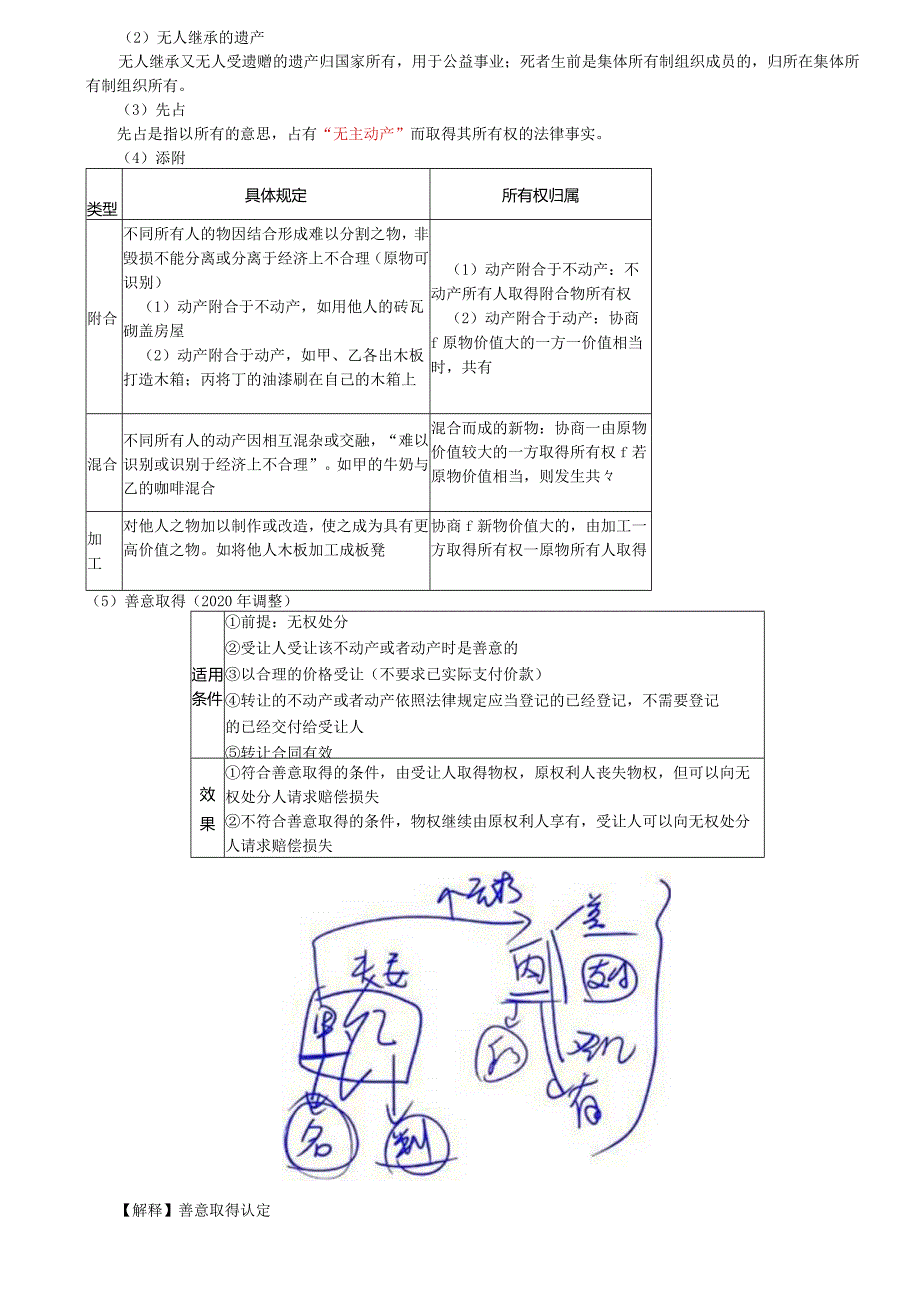 （2）无人继承的遗产
无人继承又无人受遗赠的遗产归国家所有，用于公益事业；死者生前是集体所有制组织成员的，归所在集体所
有制组织所有。
（3）先占
先占是指以所有的意思，占有“无主动产”而取得其所有权的法律事实。
（4）添附
类型
具体规定
所有权归属
附合
不同所有人的物因结合形成难以分割之物，非
毁损不能分离或分离于经济上不合理（原物可
识别）
（1）动产附合于不动产，如用他人的砖瓦
砌盖房屋
（2）动产附合于动产，如甲、乙各出木板
打造木箱；丙将丁的油漆刷在自己的木箱上
（1）动产附合于不动产：不
动产所有人取得附合物所有权
（2）动产附合于动产：协商
f 原物价值大的一方一价值相当
时，共有
混合
不同所有人的动产因相互混杂或交融，“难以
识别或识别于经济上不合理”。如甲的牛奶与
乙的咖啡混合
混合而成的新物：协商一由原物
价值较大的一方取得所有权 f 若
原物价值相当，则发生共々
加
工
对他人之物加以制作或改造，使之成为具有更
高价值之物。如将他人木板加工成板凳
协商 f 新物价值大的，由加工一
方取得所有权一原物所有人取得
（5）善意取得（2020 年调整）
适用
条件
①前提：无权处分
②受让人受让该不动产或者动产时是善意的
③以合理的价格受让（不要求已实际支付价款）
④转让的不动产或者动产依照法律规定应当登记的已经登记，不需要登记
的已经交付给受让人
⑤转让合同有效
效
果
①符合善意取得的条件，由受让人取得物权，原权利人丧失物权，但可以向无
权处分人请求赔偿损失
②不符合善意取得的条件，物权继续由原权利人享有，受让人可以向无权处分
人请求赔偿损失
夫妻
丙
甲
乙
名
有
【解释】善意取得认定